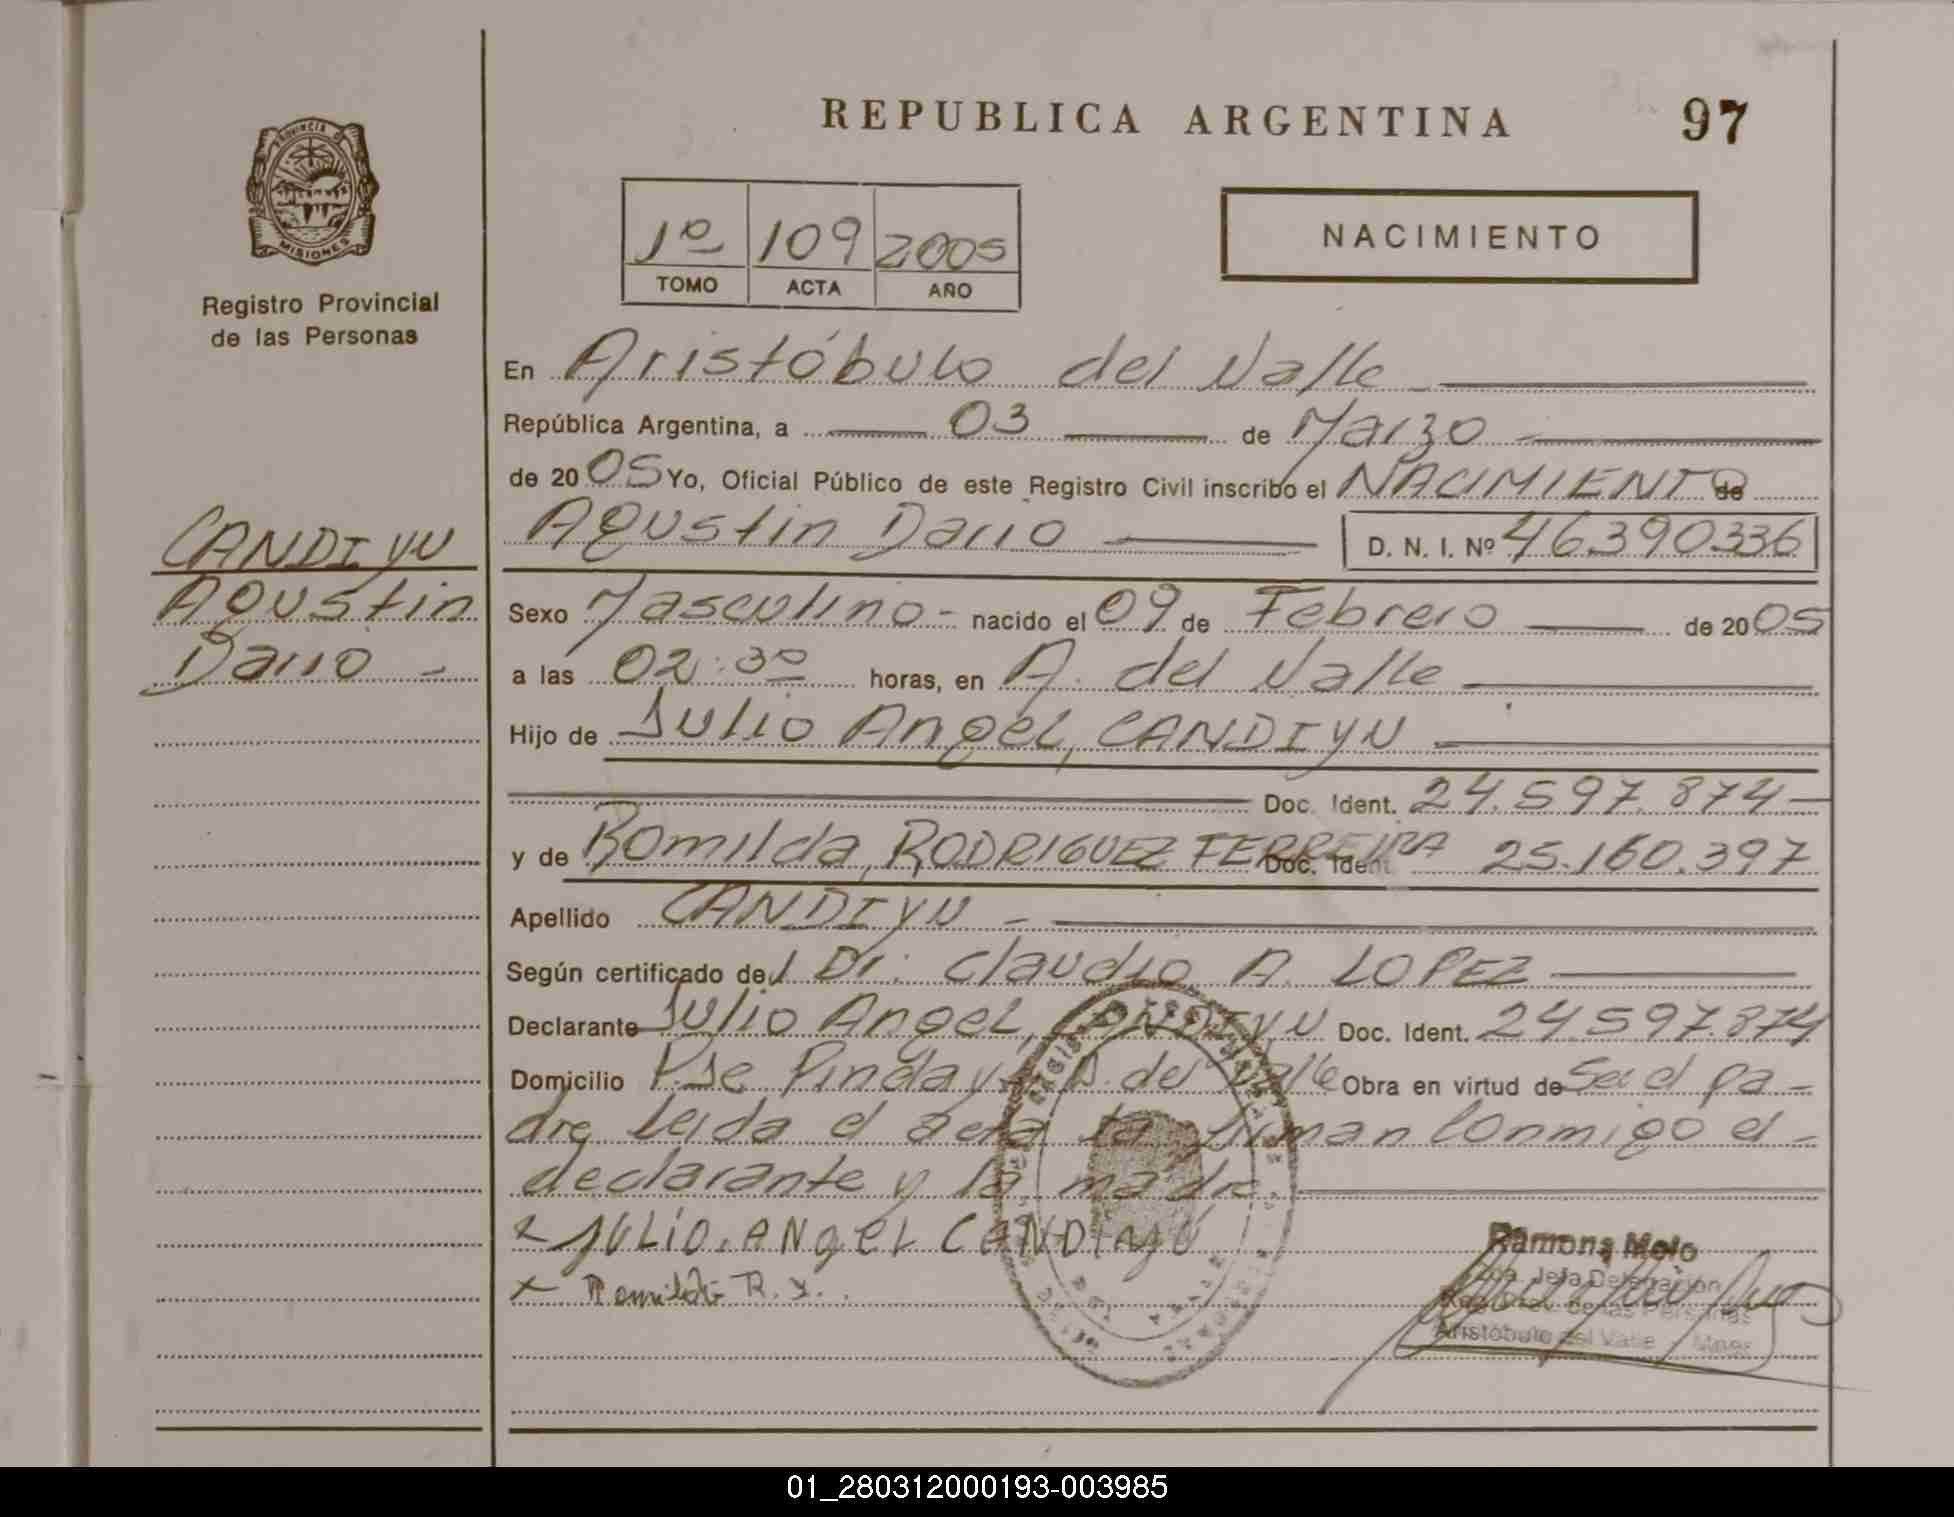 REPUBLICA ARGENTINA
97
PROVINCIA DE
MISIONES
Registro Provincial
de las Personas
1º 109 2005
TOMO ACTA AÑO
NACIMIENTO
En Aristóbulo del Valle
República Argentina, a 03 de Marzo
de 2005 Yo, Oficial Público de este Registro Civil inscribo el NACIMIENTO de
Agustin Dario D. N. I. Nº 46.390.336
CANDIYU
Agustin
Dario
Sexo Masculino nacido el 09 de Febrero de 2005
a las 02:30 horas, en A. del Valle
Hijo de Julio Angel, CANDIYU
Doc. Ident. 24.597.874
y de Romilda, RODRIGUEZ FERREIRA Doc. Ident. 25.160.397
Apellido CANDIYU
Según certificado del Dr. Claudio A. LOPEZ
Declarante Julio Angel, CANDIYU Doc. Ident. 24.597.874
Domicilio Pje Pindayti A. del Valle Obra en virtud de Ser el pa-
dre leida el acta la firman Conmigo el
declarante y la madre
x JULIO. ANgEL CANDIYU
x Romilda R. F.
Ramona Melo
Jefa Delegación
Reg. Prov. de las Personas
Aristóbulo del Valle - Mnes.
01_280312000193-003985